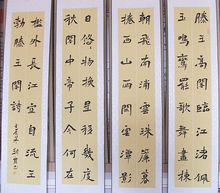 滕王高閣臨江渚佩
玉鳴鸞罷歌舞畫棟
朝飛南浦雲珠簾暮
捲西山雨閒雲潭影
日悠々物換星移幾度
秋閣中帝子今何在
檻外長江空自流王
勃滕王閣詩